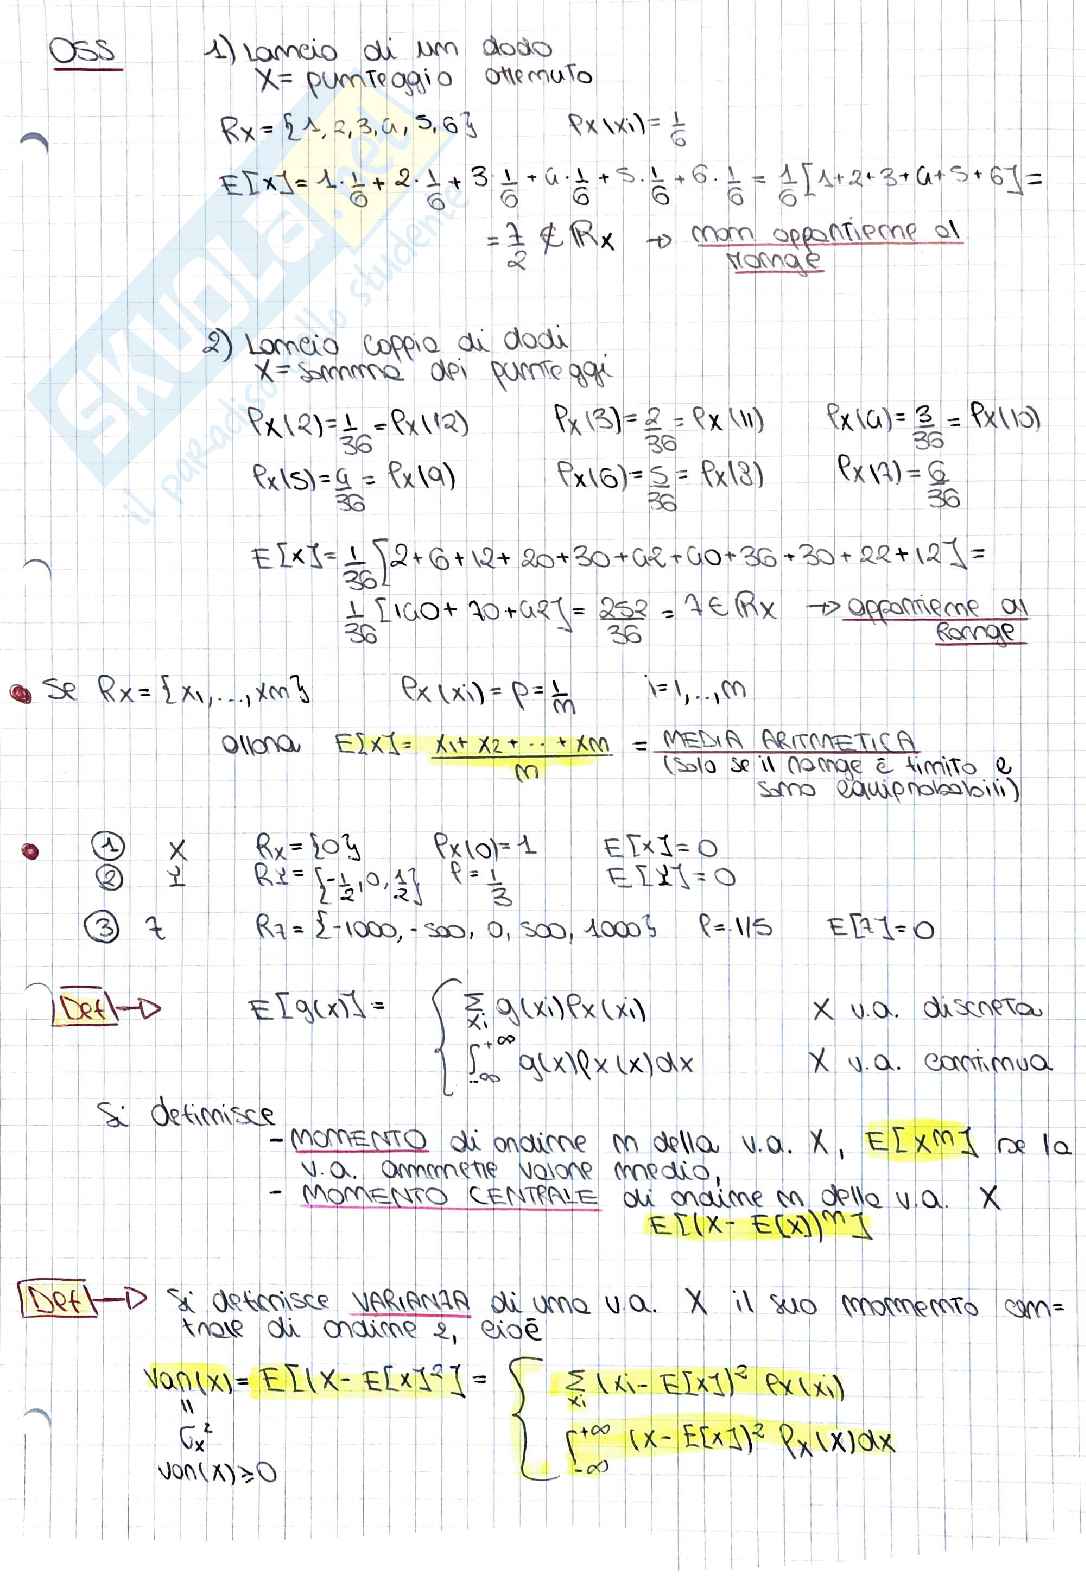 OSS 1) Lancio di un dado
X = punteggio ottenuto
Rx = {1, 2, 3, 4, 5, 6} Px(xi) = 1/6
E[X] = 1·1/6 + 2·1/6 + 3·1/6 + 4·1/6 + 5·1/6 + 6·1/6 = 1/6 [1+2+3+4+5+6] =
= 7/2 ∉ Rx → non appartiene al
range
2) Lancio coppia di dadi
X = somma dei punteggi
Px(2) = 1/36 = Px(12) Px(3) = 2/36 = Px(11) Px(4) = 3/36 = Px(10)
Px(5) = 4/36 = Px(9) Px(6) = 5/36 = Px(8) Px(7) = 6/36
E[X] = 1/36 [2+6+12+20+30+42+40+36+30+22+12] =
1/36 [140+70+42] = 252/36 = 7 ∈ Rx → appartiene al
Range
• Se Rx = {x1, ..., xn} Px(xi) = p = 1/n i=1,..,n
allora E[X] = (x1 + x2 + .. + xn)/n = MEDIA ARITMETICA
(solo se il range è finito e
sono equiprobabili)
• ① X Rx = {0} Px(0) = 1 E[X] = 0
② Y RY = {-1/2, 0, 1/2} P = 1/3 E[Y] = 0
③ Z RZ = {-1000, -500, 0, 500, 1000} P = 1/5 E[Z] = 0
Def → E[g(x)] = { Σxi g(xi) Px(xi) X v.a. discreta
∫-∞+∞ g(x) Px(x) dx X v.a. continua
Si definisce
- MOMENTO di ordine n della v.a. X, E[X^n] se la
v.a. ammette valore medio,
- MOMENTO CENTRALE di ordine n della v.a. X
E[(X - E(X))^n]
Def → Si definisce VARIANZA di una v.a. X il suo momento cen=
trale di ordine 2, cioè
Var(X) = E[(X - E[X]²] = { Σxi (xi - E[X])² Px(xi)
=
σx² ∫-∞+∞ (x - E[X])² Px(x) dx
var(x) ≥ 0
SKUOLA.net
il paradiso dello studente